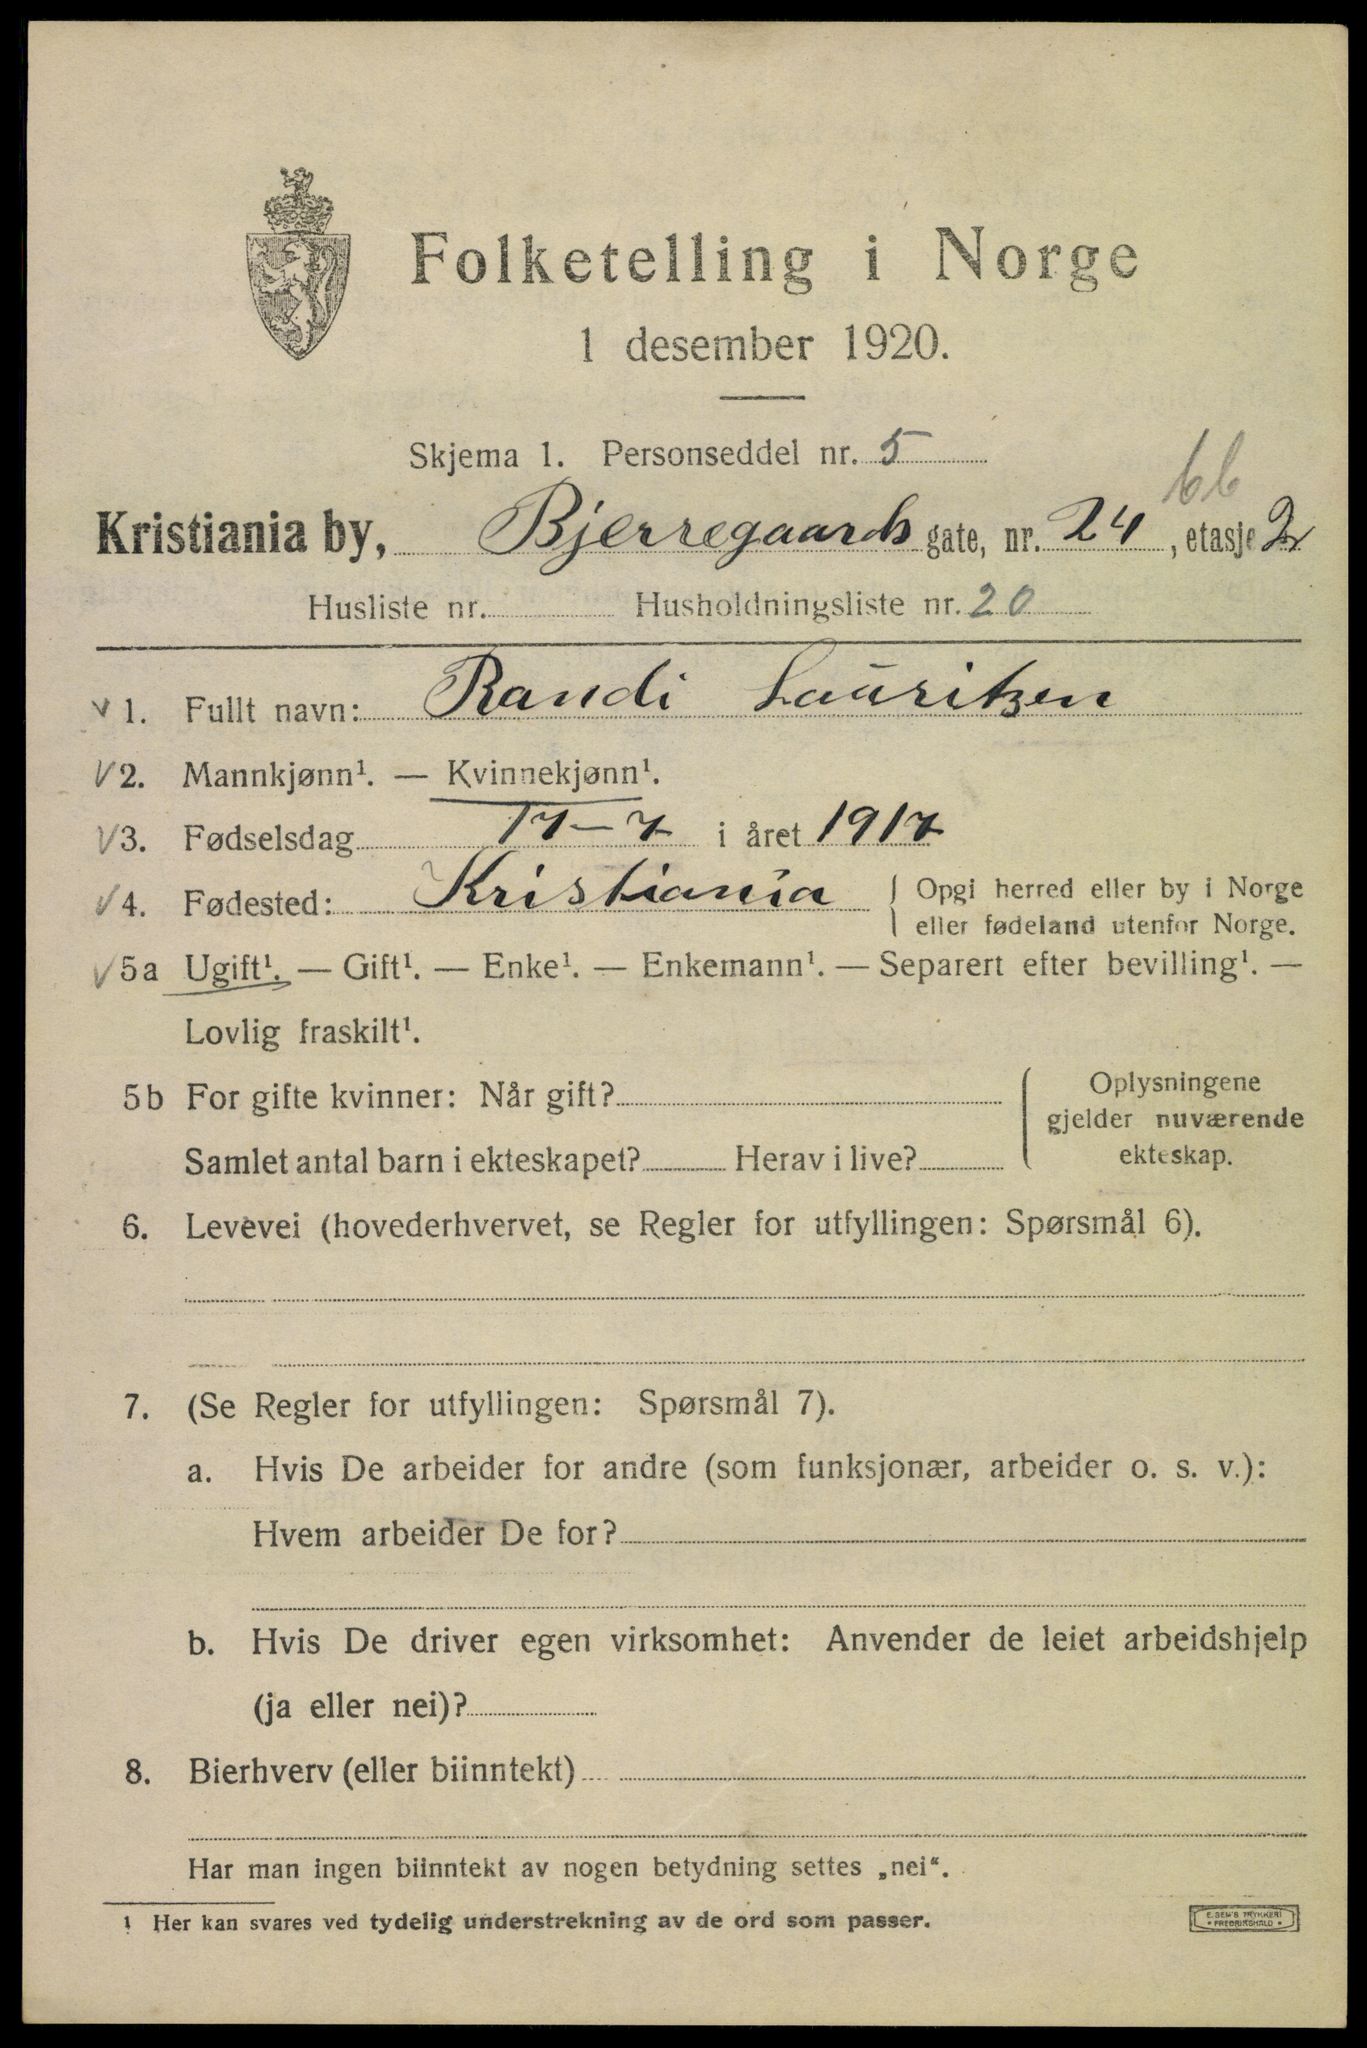 Folketelling i Norge
1 desember 1920.
Skjema 1. Personseddel nr. 5
66
Kristiania by, Bjerregaards gate, nr. 24, etasje 2
Husliste nr. Husholdningsliste nr. 20
1. Fullt navn: Randi Lauritzen
2. Mannkjønn¹. — Kvinnekjønn¹.
3. Fødselsdag 17-7 i året 1917
4. Fødested: Kristiania { Opgi herred eller by i Norge
eller fødeland utenfor Norge.
5a Ugift¹. — Gift¹. — Enke¹. — Enkemann¹. — Separert efter bevilling¹. —
Lovlig fraskilt¹.
5b For gifte kvinner: Når gift?
Samlet antal barn i ekteskapet? Herav i live?
Oplysningene
gjelder nuværende
ekteskap.
6. Levevei (hovederhvervet, se Regler for utfyllingen: Spørsmål 6).
7. (Se Regler for utfyllingen: Spørsmål 7).
a. Hvis De arbeider for andre (som funksjonær, arbeider o. s. v.):
Hvem arbeider De for?
b. Hvis De driver egen virksomhet: Anvender de leiet arbeidshjelp
(ja eller nei)?
8. Bierhverv (eller biinntekt)
Har man ingen biinntekt av nogen betydning settes „nei“.
¹ Her kan svares ved tydelig understrekning av de ord som passer.
E. SEM'S TRYKKERI
• FREDRIKSHALD •